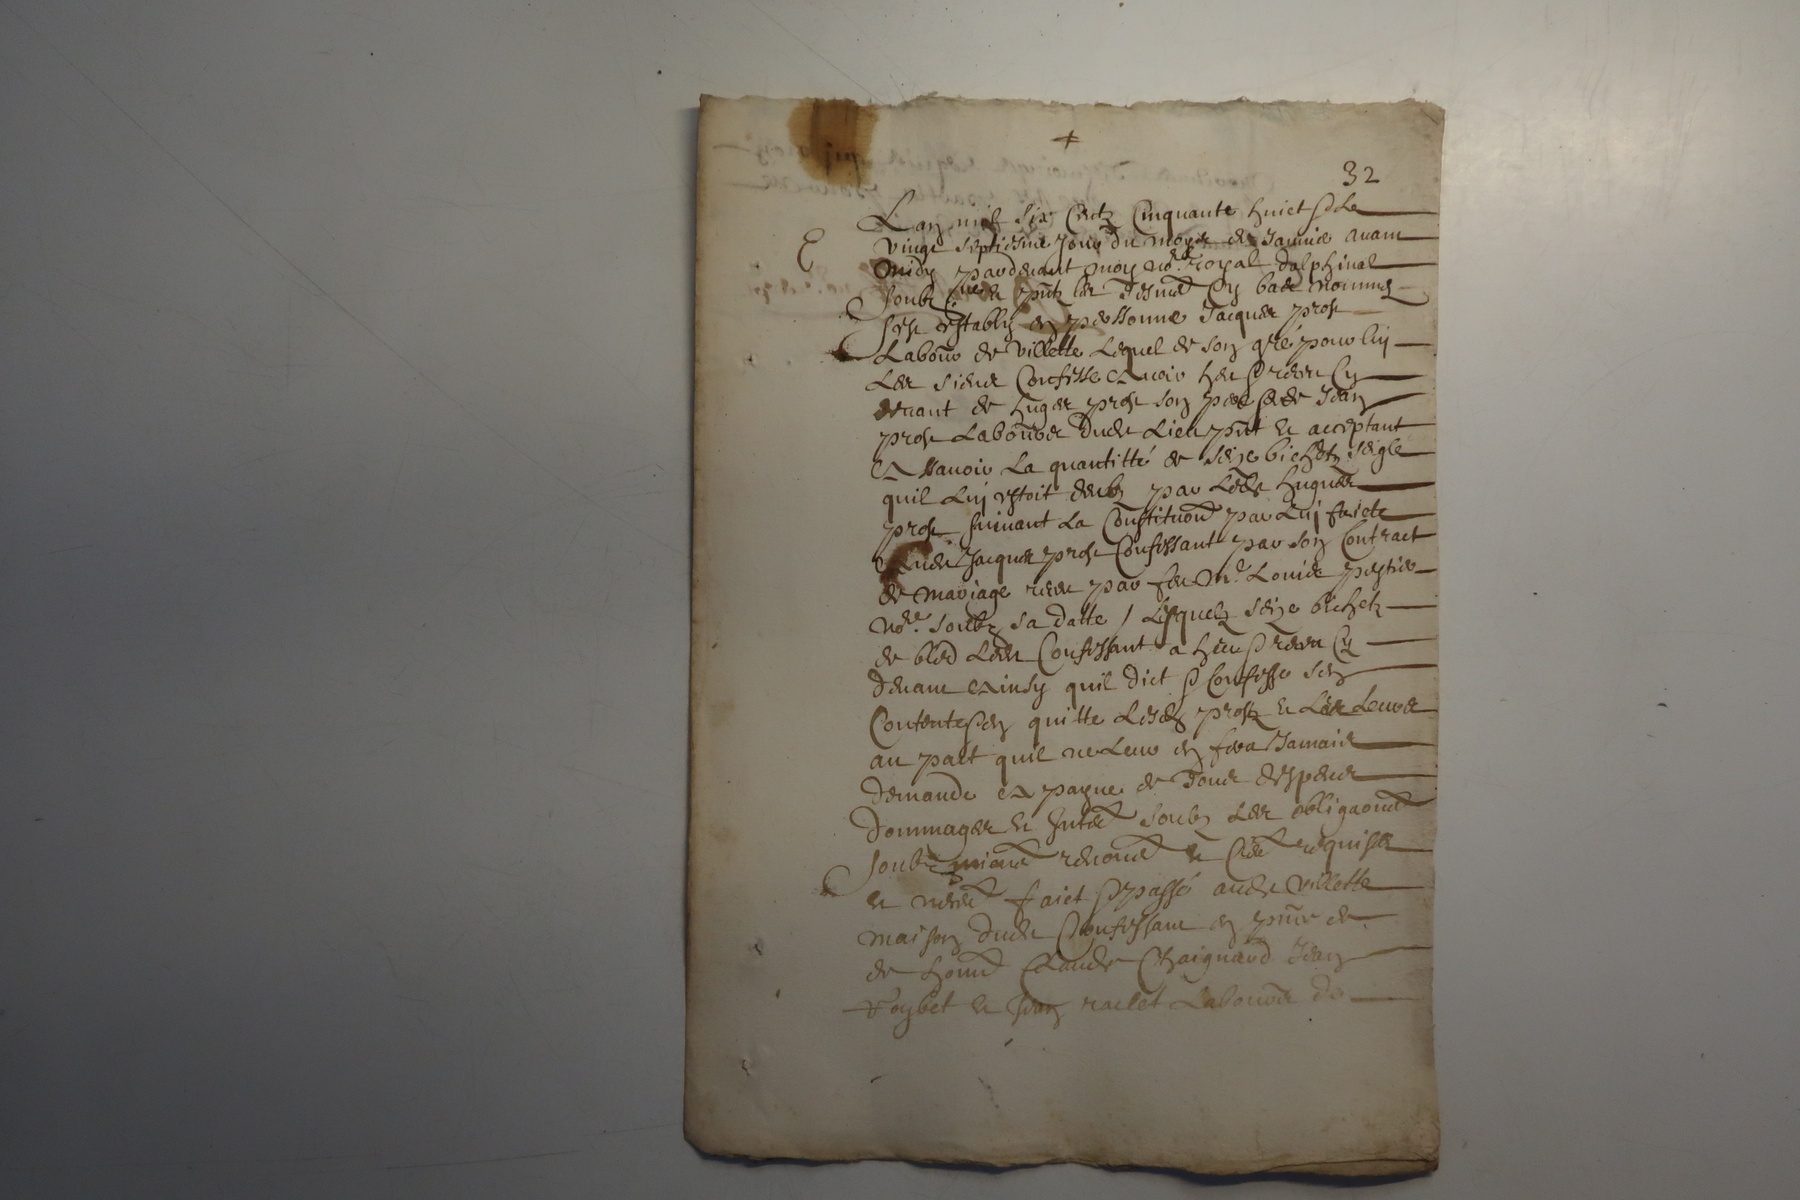 32
Lan mil six centz cinquante huict & le
vingt septiesme jour du moys de Janvier avant
midy pardevant moy no.re royal dalphinal
soubz.né & pntz les tesmoins cy bas nommez
sest establi en personne Jacques prost
Labour de Villette Lequel de son gré pour luy
Les siens Confesse avoir heu & receu cy
devant de hugues prost son pere & de Jean
prost Laboureur dud Lieu pnt & acceptant
Assavoir La quantitté de seize bichetz seigle
quil Luy estoit deubz par Led hugues
prost suivant La Constituon par Luy faicte
Aud Jacques prost Confessant par son Contract
de mariage receu par feu M.e Louis
no.re soubz sa datte / Lesquelz seize bichetz
de bled Led Confessant a heu & receu cy
devant Ainsy quil dict & Confesse sen
Contente & en quitte Lesd prost & Les Leurs
au pact quil ne Leur en fera Jamais
demande A payne de tous despens
dommages & intestz soubz Les obligaons
soubz renons & requises
& faict & passé aud Villette
maison dud Confessant en pnce de
de honn Claude Chaignard Jean
& Jean raclet Laboureurs du